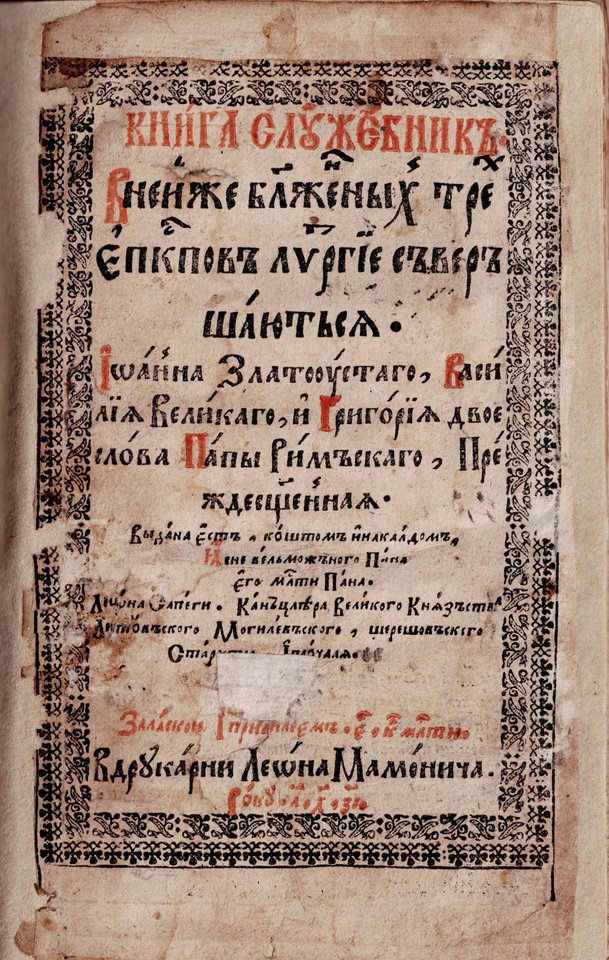 КНИ́ГА СЛꙊЖЕ́БНИКЪ.
Вне́йже бл҃же́ныхъ тре
Е҆пⷭ҇кповъ лꙋргі́е съверъ
ша́ютьсѧ.
Іѡа́нна Златоꙋ́стаго, Васи́
лїѧ Вели́каго, и҆ Григо́рїѧ двое
сло́ва Па́пы Ри́мъскаго, Пре́
ждесще́ннаѧ.
Выдана е҆́сть, ко́штомъ и҆накла́домъ,
Ꙗ҆сне вельмо́жного Па́на
Е҆го̀ мл҃ти Па́на.
Леѡ́на Сапеги. Ка́нъцлѣра Вели́кого Кнѧ́зства
Лито́въского Могиле́въского, шерешо́въского
За ла́скою І привилиемъ. Е҆го к҃ мл҃ти.
Вдрꙋка́рни Леѡ́на Мамо́нича.